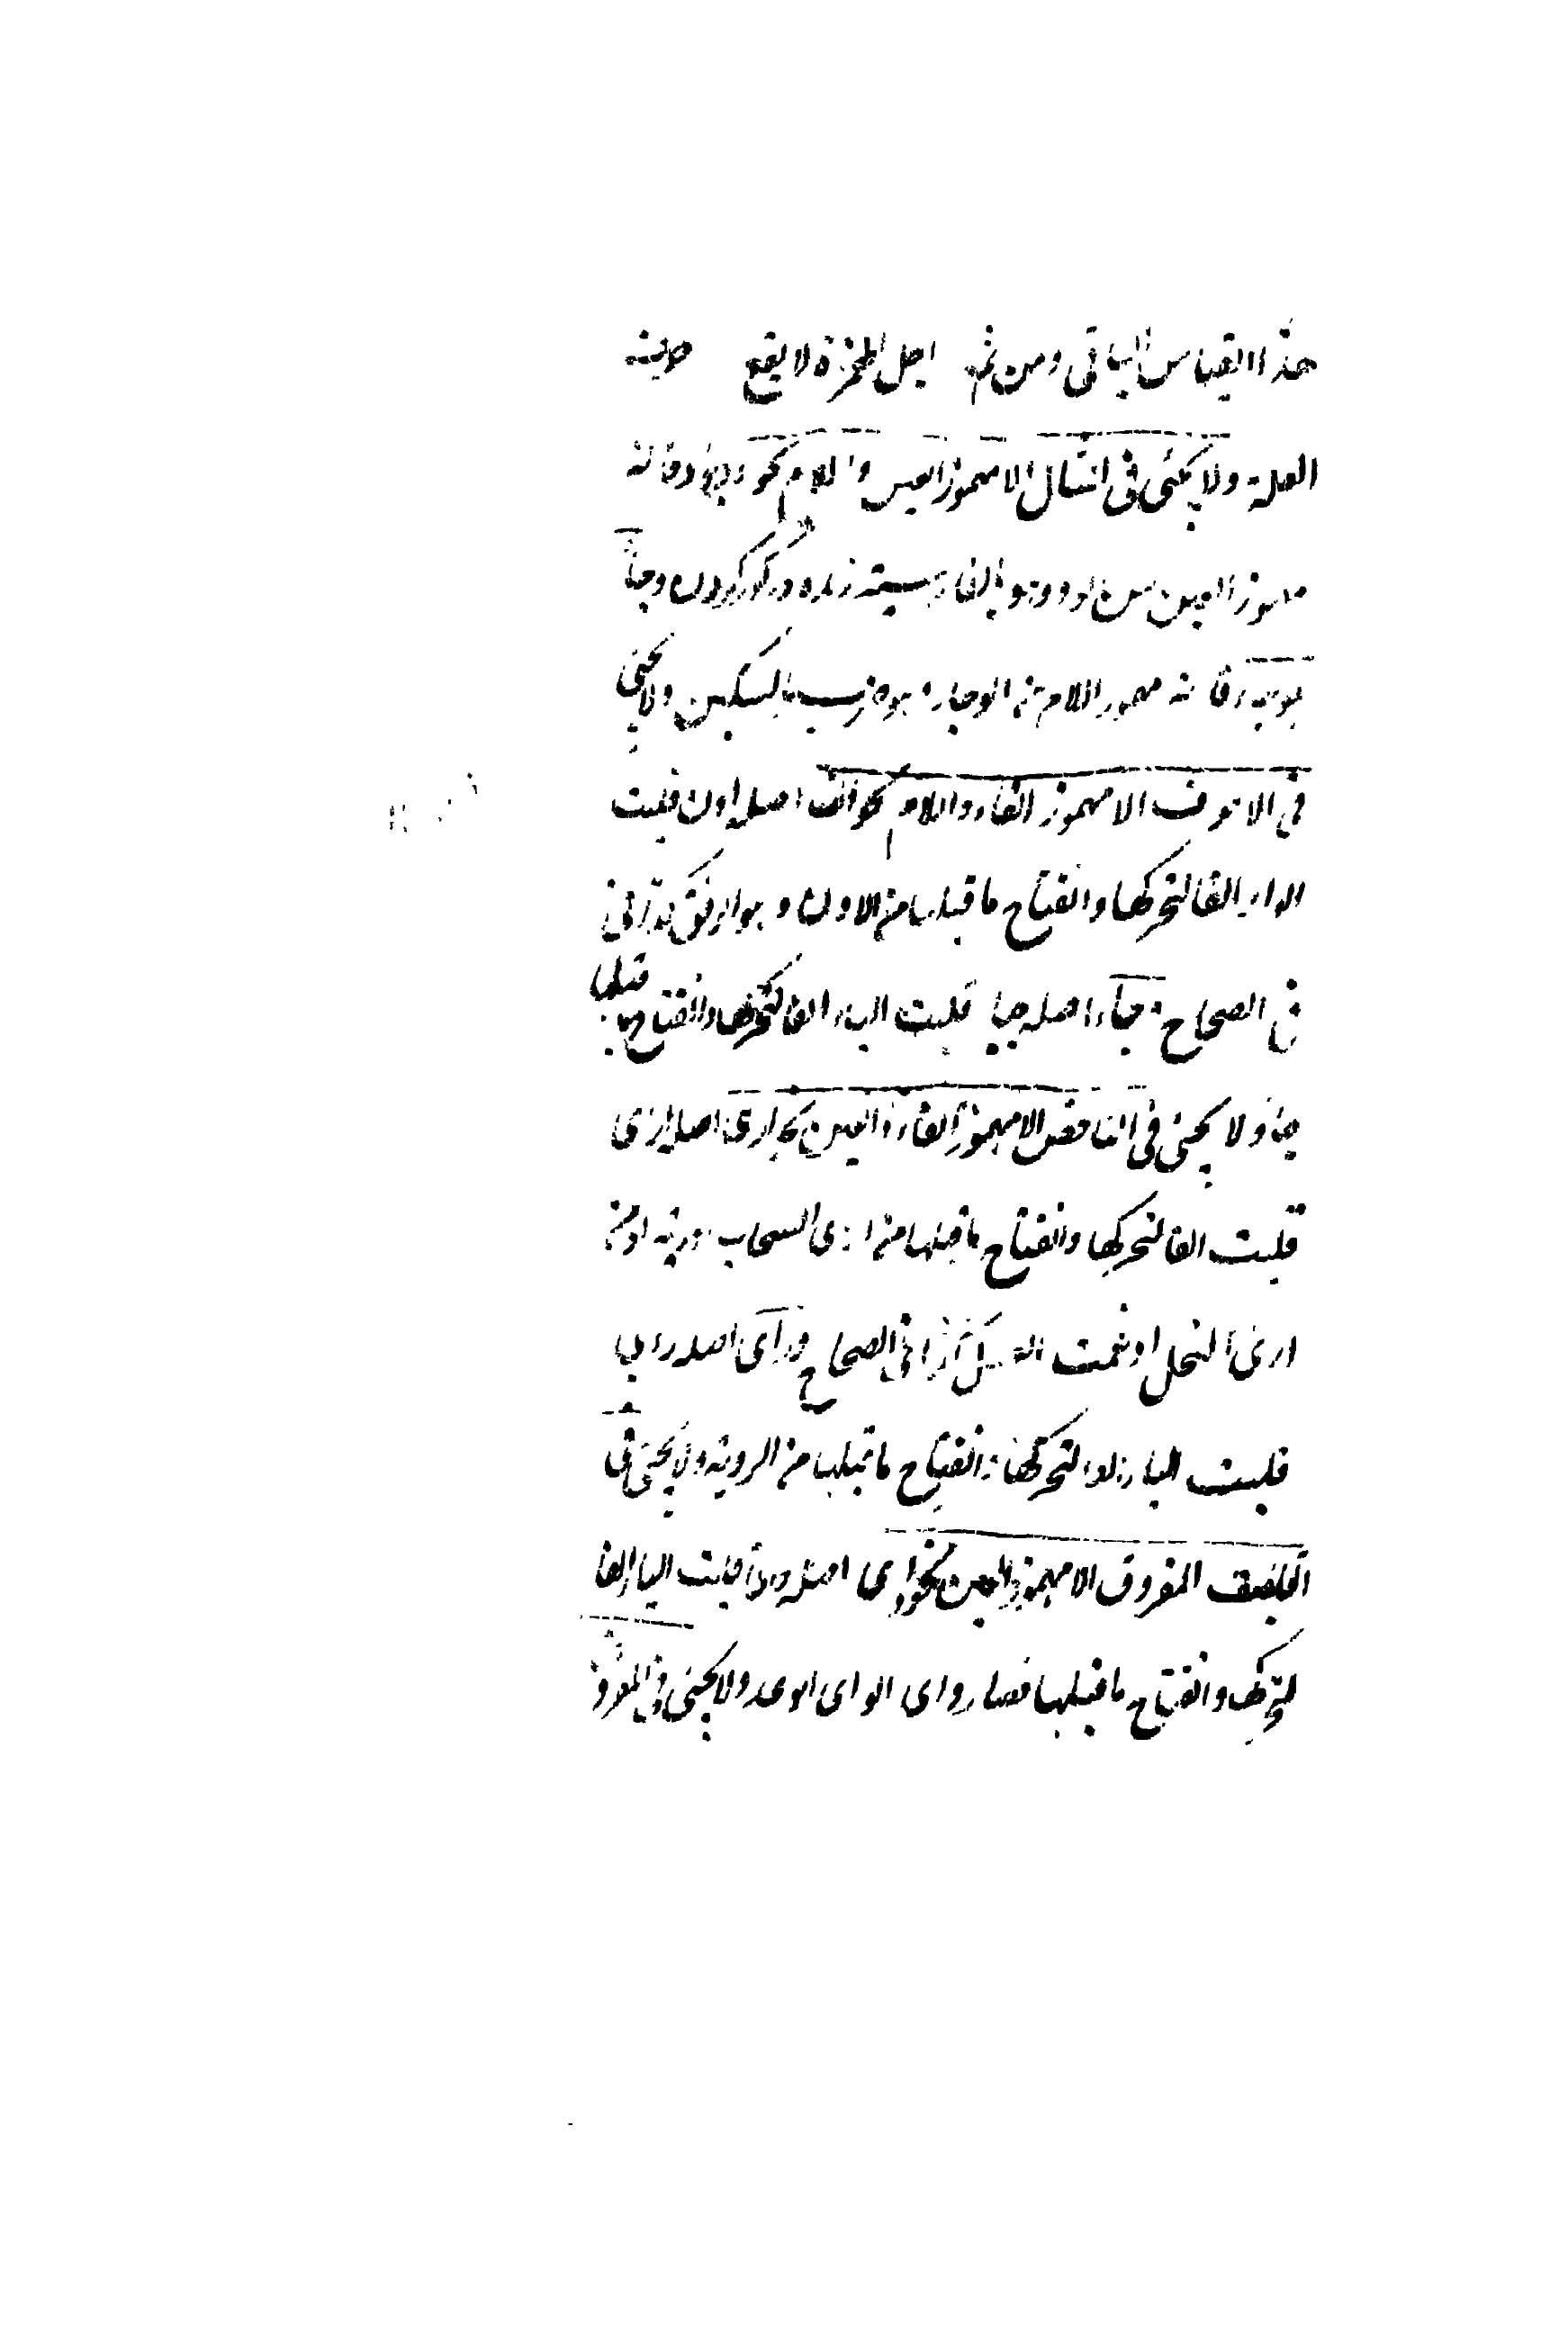 هذا القياس الباقى ومن ثم اجل الهمزة لا يقع موضع
العلة ولا يجئ فى المثال الا مهموز العين واللام نحو وأد فانه
مهموز العين من الوأد وهو بالفارسية زنده در گور كردن ووجأ
يوجأ فانه مهموز اللام من الوجاء وهو ضرب بالسكين ولا يجئ
فى الاجوف الا مهموز الفاء واللام نحو آن اصله اون قلبت
الواو الفا لتحركها وانفتاح ما قبلها من الاون وهو الرفق كذا فى
فى الصحاح وجاء اصله جيا قلبت الياء الفا لتحركها وانفتاح ما قبلها
ولا يجئ فى الناقص الا مهموز الفاء والعين نحو ارى اصله ارى
قلبت الفا لتحركها وانفتاح ما قبلها من ارى السحاب
ارى النحل او عملت العسل كذا فى الصحاح ورأى اصله رأي
قلبت الياء الفا لتحركها وانفتاح ما قبلها من الروية ولا يجئ فى
اللفيف المفروق الا مهموز العين نحو وأى اصله وأى قلبت الياء الفا
لتحركها وانفتاح ما قبلها فصار وأى الوأى الوعد ولا يجئ فى المقرون